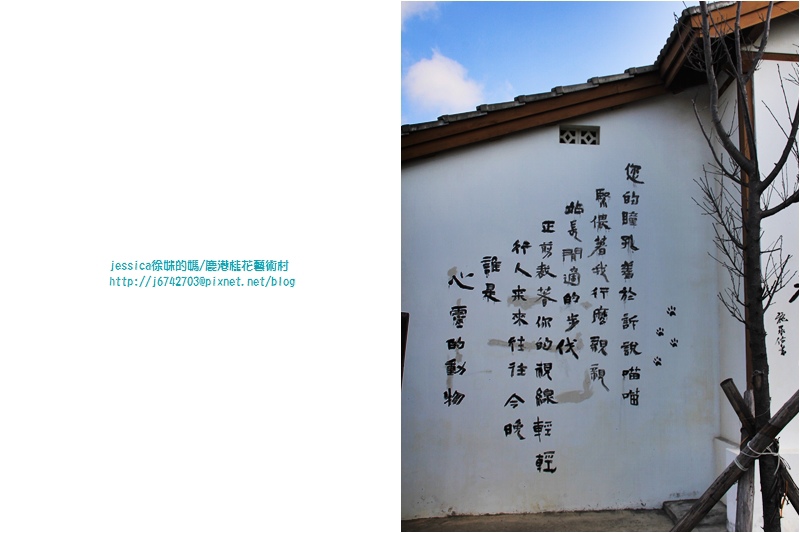 jessica徐妹的媽/鹿港桂花藝術村
http://j6742703@pixnet.net/blog
您的瞳孔善於訴說喵喵
緊著我行
長閒適的步伐
正剪裁著你的視線輕輕
行人來來往往今晚
誰是
心靈的動物